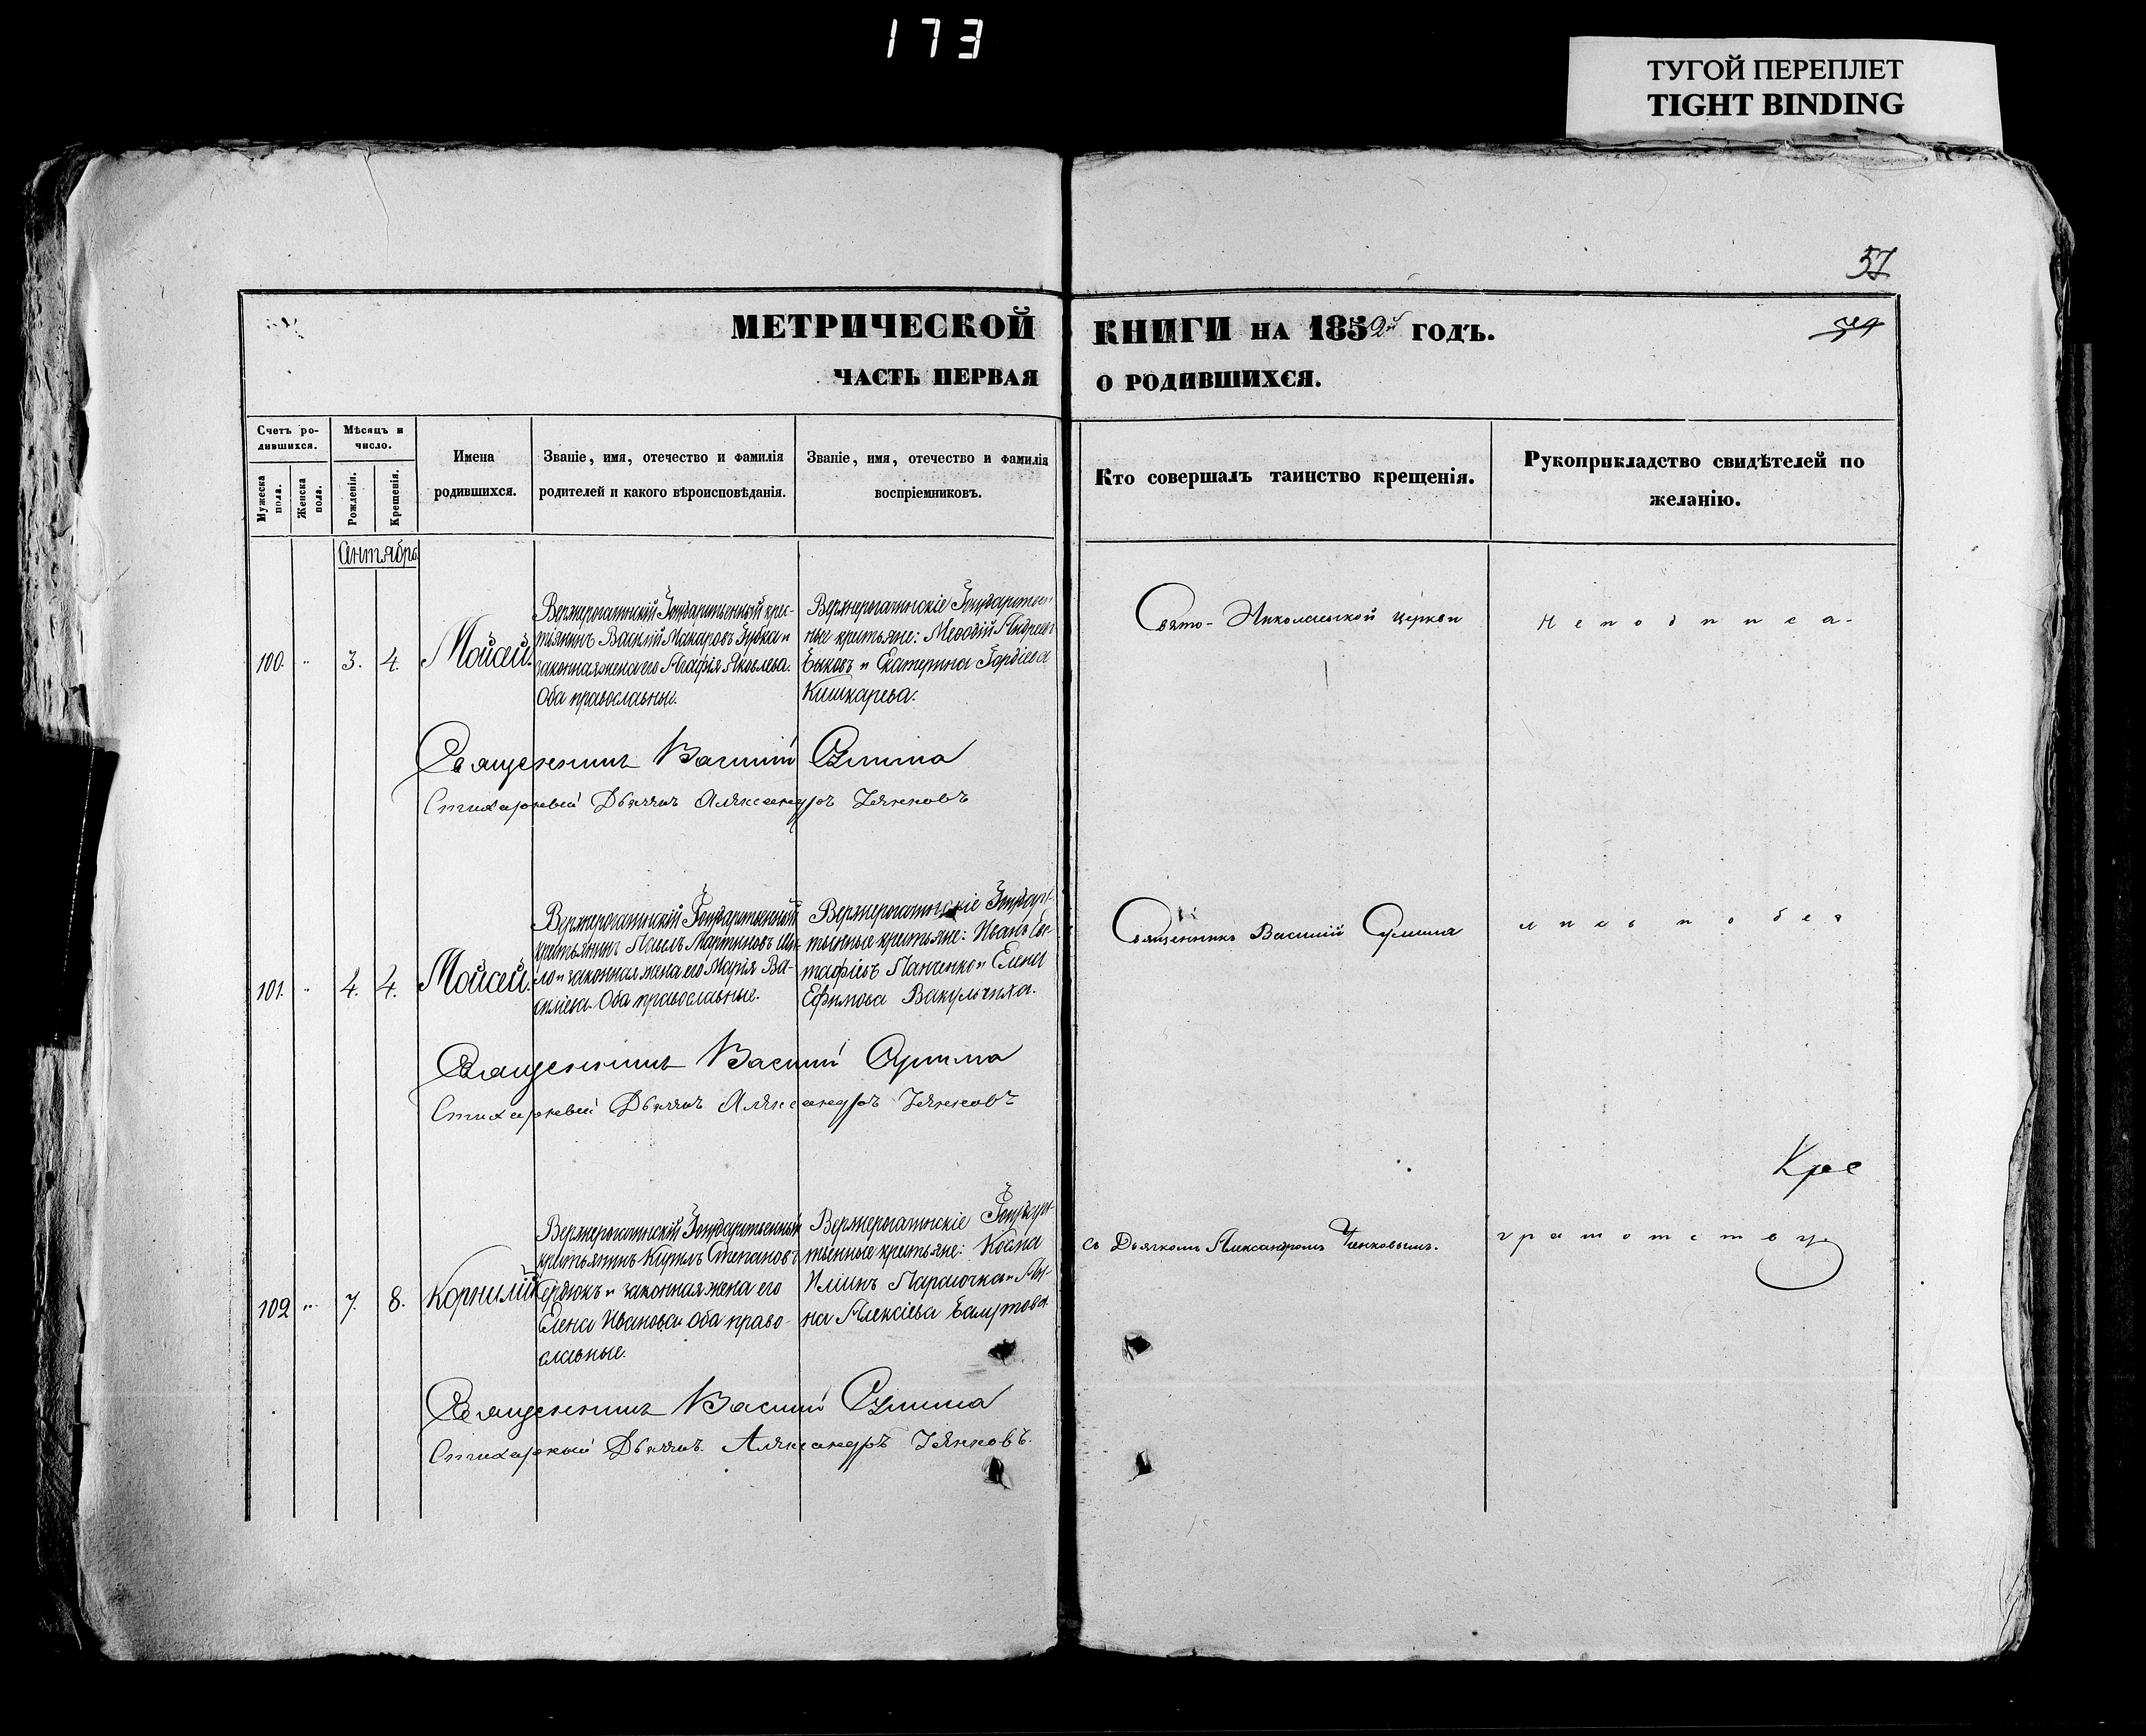 173
ТУГОЙ ПЕРЕПЛЕТ
TIGHT BINDING
57
МЕТРИЧЕСКОЙ КНИГИ НА 1852й ГОДЪ.
ЧАСТЬ ПЕРВАЯ О РОДИВШИХСЯ.
Счетъ ро-
дившихся.
Мужеска пола.
Женска пола.
Мѣсяцъ и
число.
Рожденія.
Крещенія.
Имена
родившихся.
Званіе, имя, отечество и фамилія
родителей и какого вѣроисповѣданія.
Званіе, имя, отечество и фамилія
воспріемниковъ.
Кто совершалъ таинство крещенія.
Рукоприкладство свидѣтелей по
желанію.
Сентябрь
100. " 3. 4. Мойсей.
Государственный крес-
тьянинъ Василій Макаровъ Зубка и
законная жена его Агафія Яковлева.
Оба православные.
Государствен-
ные крестьяне: Меѳодій Андреевъ
Быковъ и Екатерина Гордіева
Кишкарева.
Свято-Николаевской церкви
Неподписа-
Священникъ Василій Сулима
Стихарный Дьячокъ Александръ Чанковъ
101. " 4. 4. Мойсей.
Государственный
крестьянинъ Павелъ Мартиновъ
и законная жена его Марія Ва-
силіева. Оба православные.
Государ-
ственные крестьяне: Иванъ Ев-
тафіевъ Панченко и Елена
Ефимова Вакульчиха.
Священникъ Василій Сулима
лись по без
Священникъ Василій Сулима
Стихарный Дьячокъ Александръ Чанковъ
Кре
102 " 7. 8. Корнилій
Государственный
крестьянинъ Степановъ
Сердюкъ и законная жена его
Елена Иванова. Оба право-
славные.
Государ-
ственные крестьяне: Косма
Илiинъ и Ан-
на Алексіева
съ Дьячкомъ Александромъ Чанковымъ.
грамотству.
Священникъ Василій Сулима
Стихарный Дьячокъ Александръ Чанковъ.